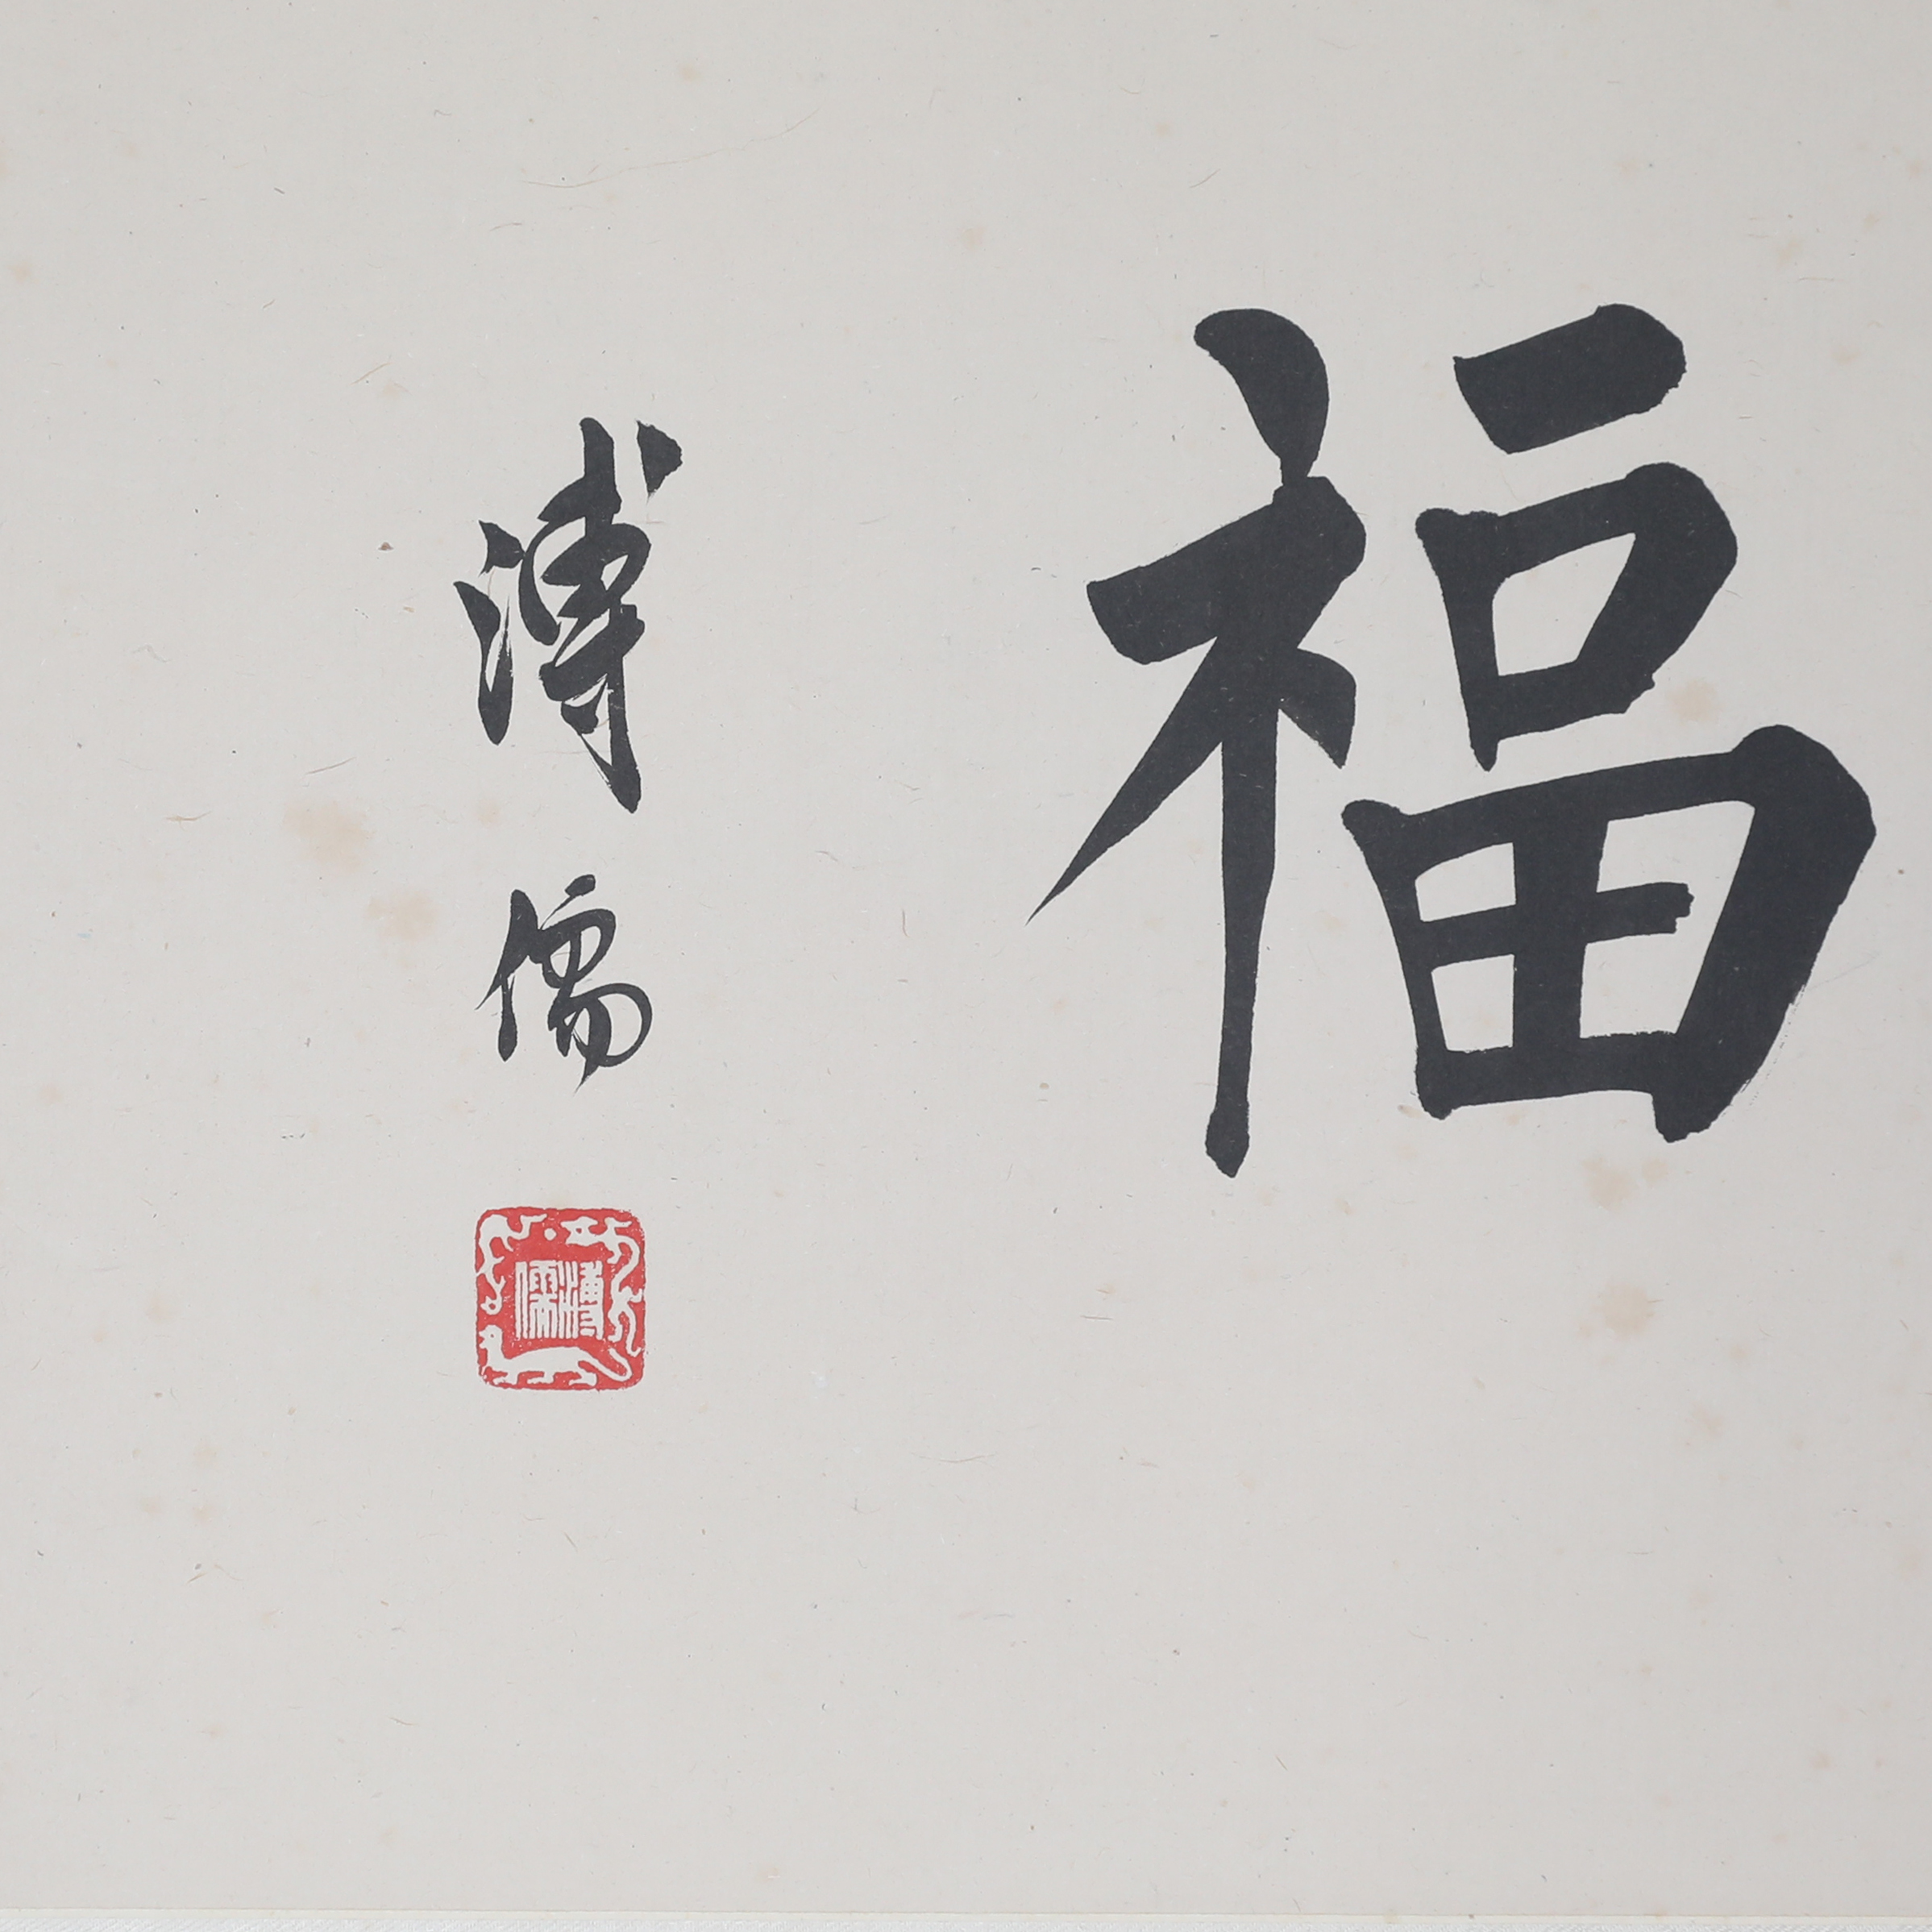 福
溥儒
溥儒